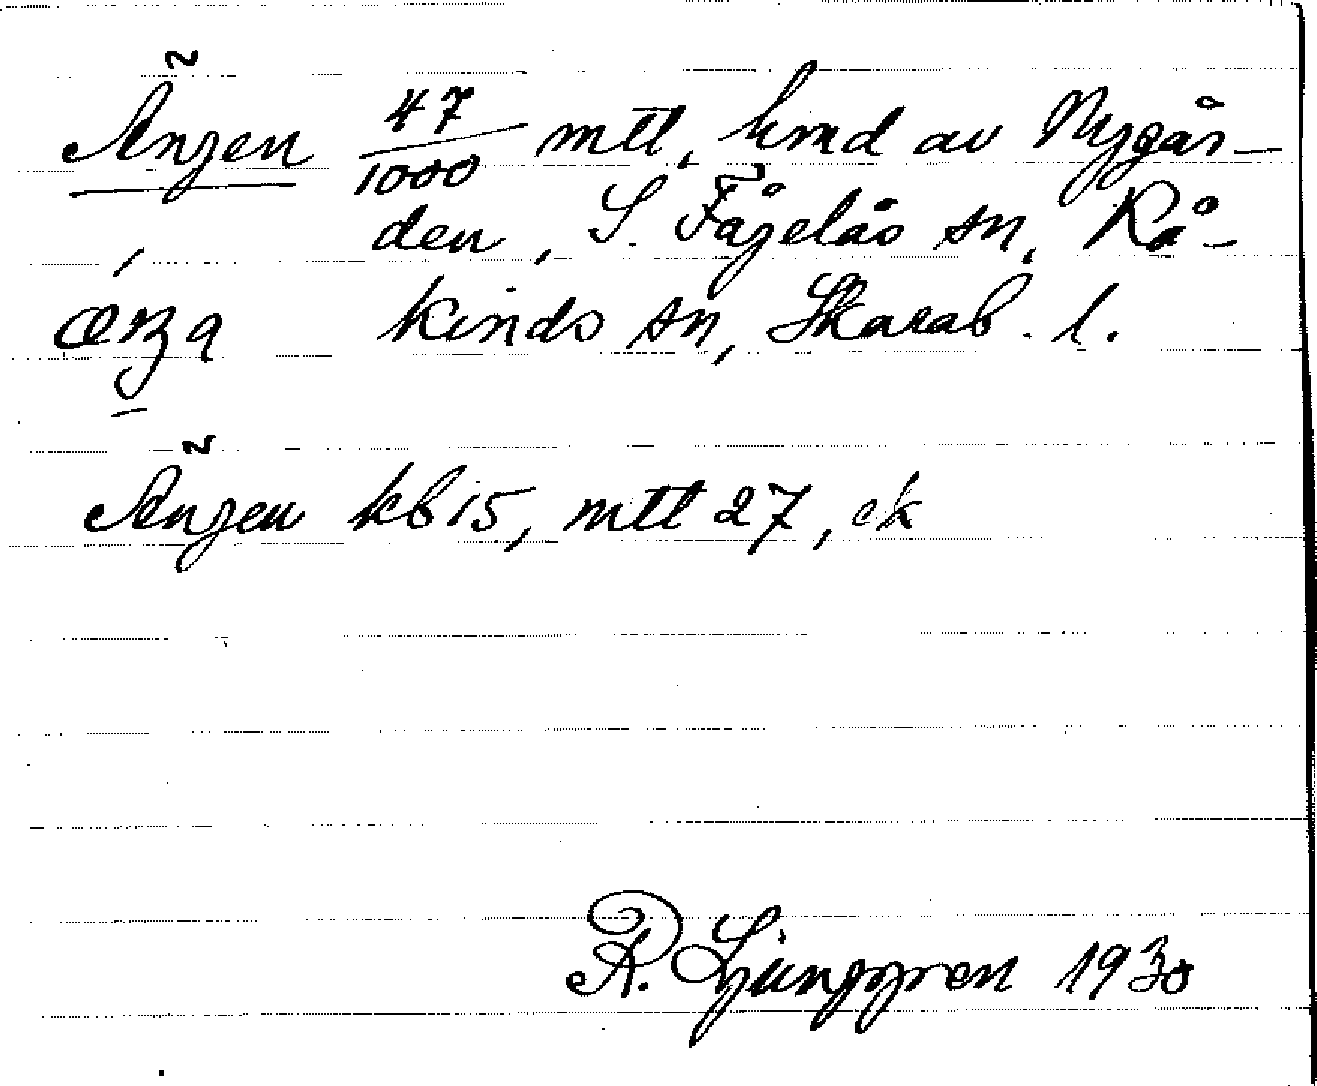 Ängen 47/1000 mtl, hmd av Nygår-
den, S. Fågelås sn, Rå-
kinds sn, Skarab. l.
Ängen kb 15, mtl 27, ek
R. Ljunggren 1930